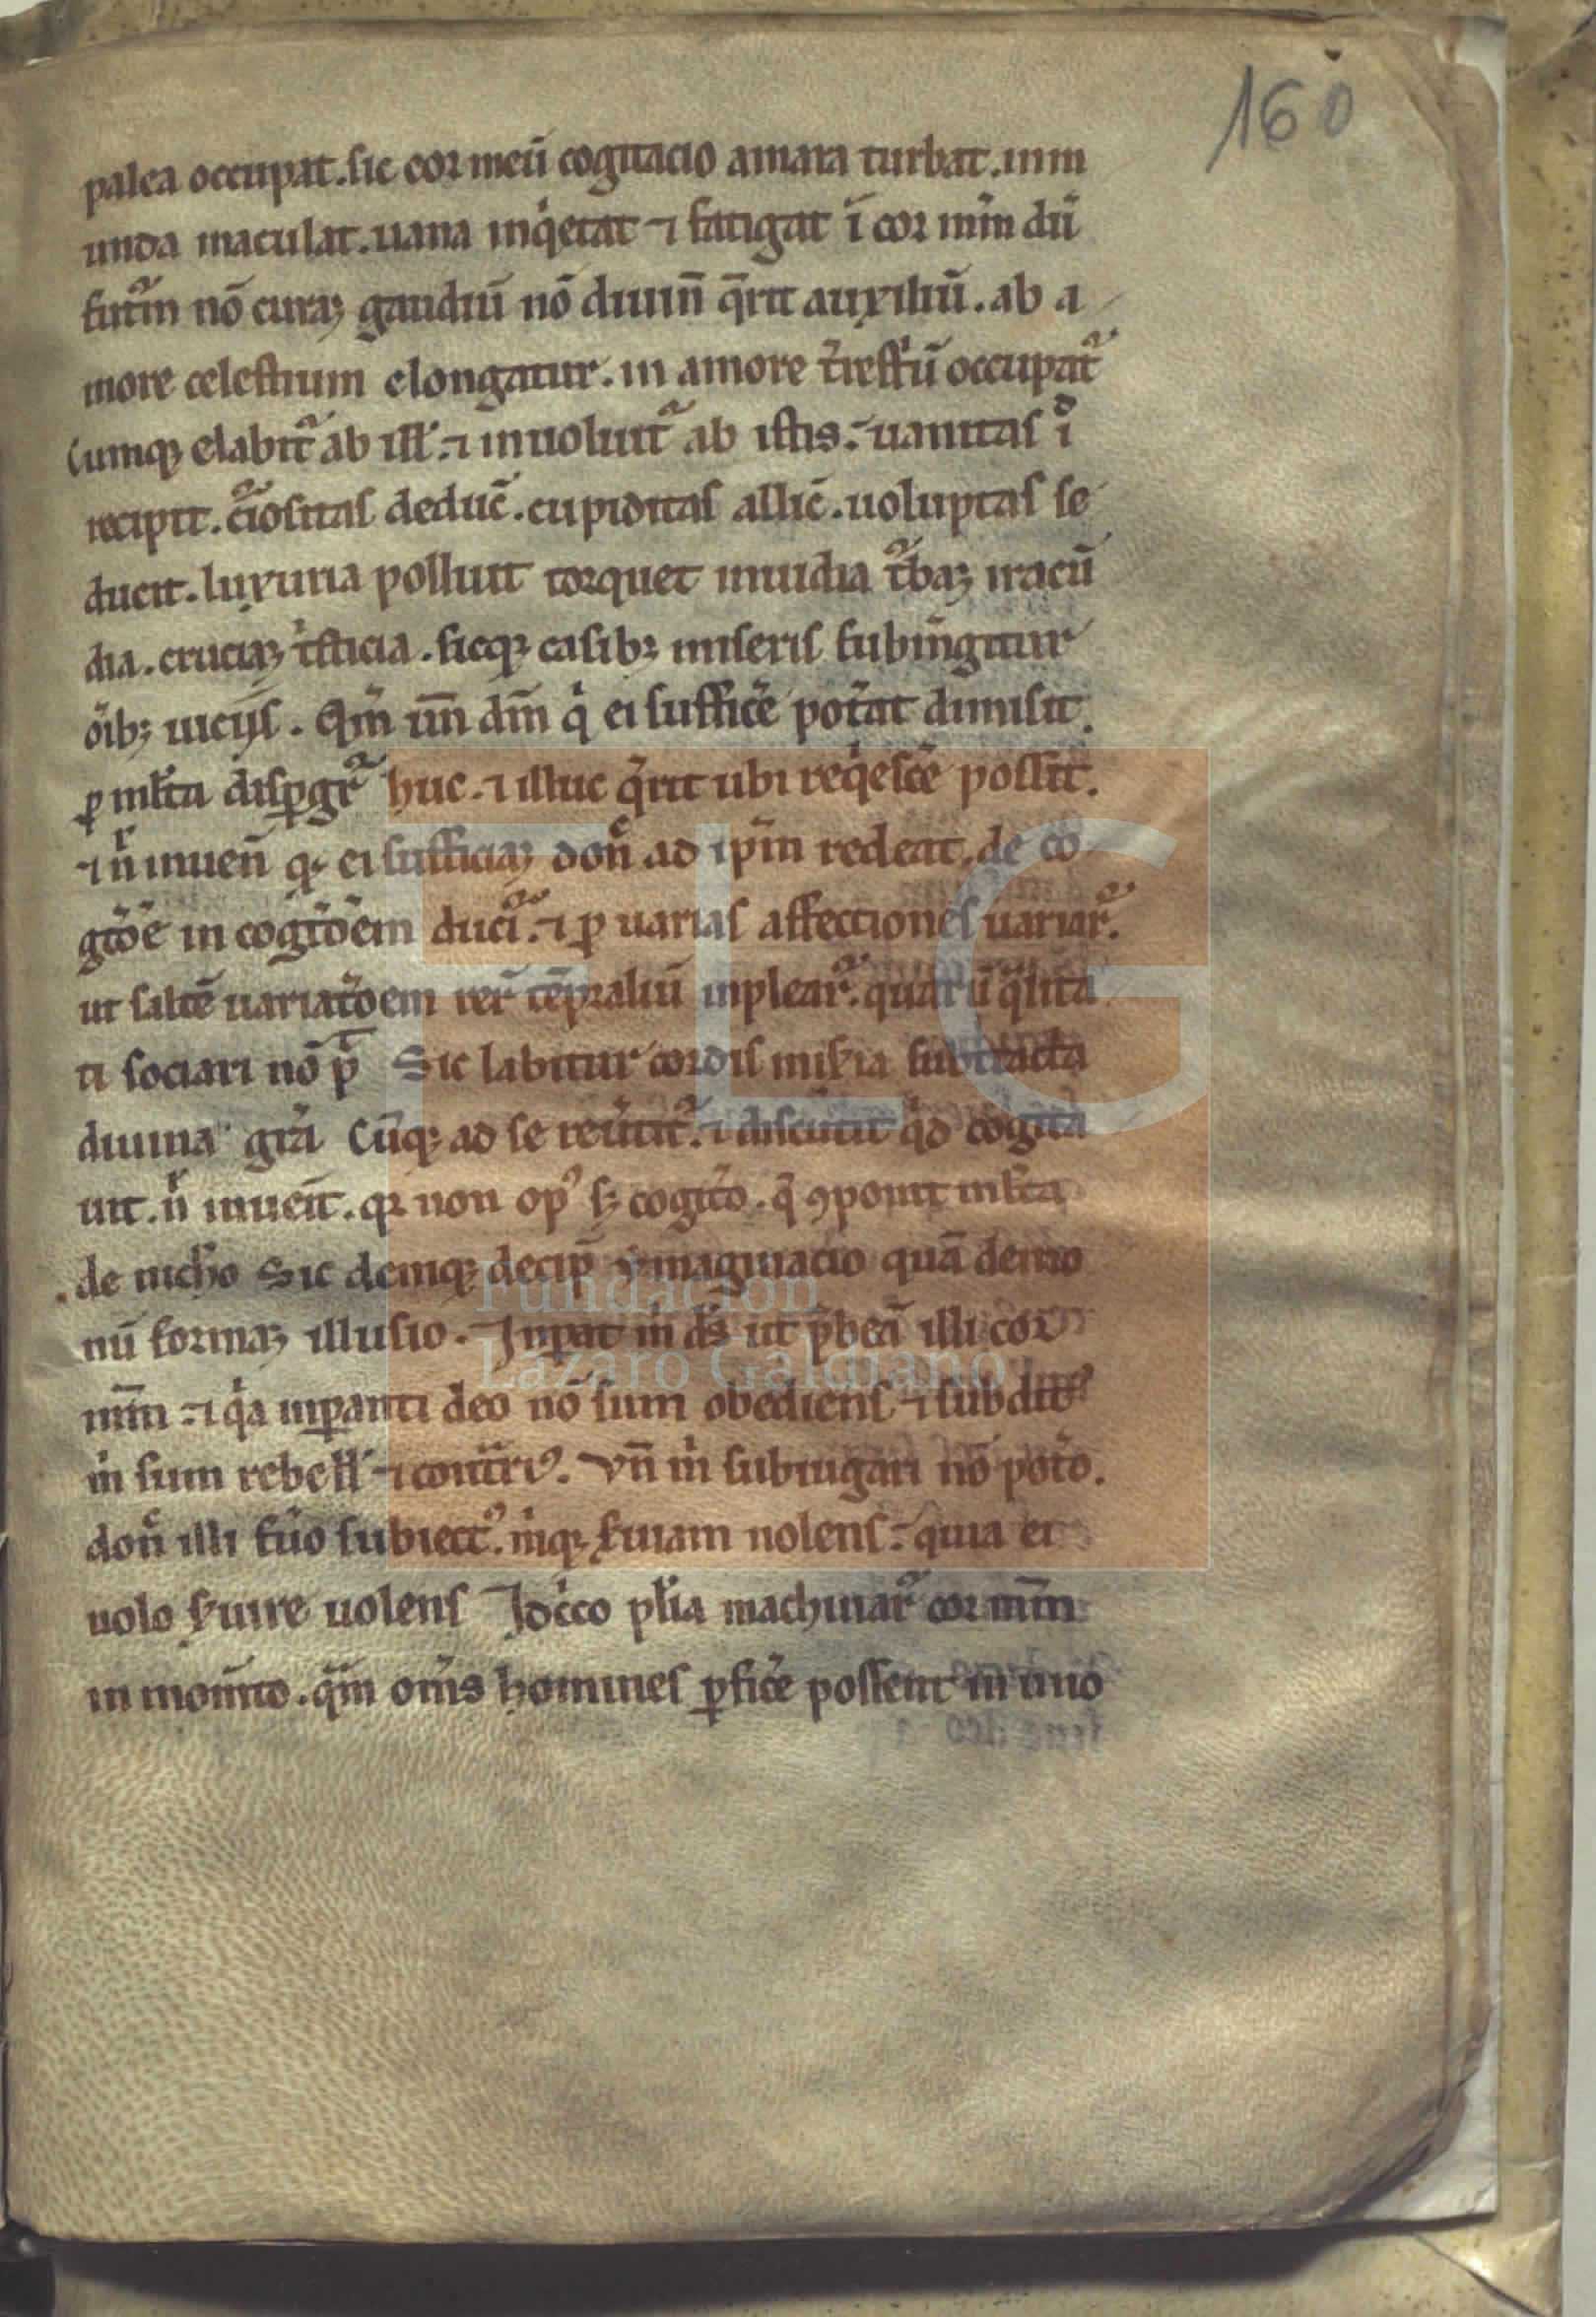 160
palea occupat. sic cor meũ cogitacio amara turbat. inm
unda maculat. uana inq̇etat ⁊ fatigat ĩ cor mm̃ dũ
futm̃ nõ curaꝫ gaudiũ nõ diuin̄ q̄rit auxiliũ. ab a
more celestium elongatur. in amore t̃restriũ occupat̃
Cumqꝫ elabit̃ ab ill̃. ⁊ inuoluit̃ ab istis. uanitas
recipit. c̃iositas deduc̃. cupiditas allic̃. uoluptas se
ducit. luxuria polluit torquet inuidia t̃baꝫ iracũ
dia. cruciaꝫ t̃sticia. sicqꝫ casibꝫ miseris subm̃gitur
oĩbꝫ uiciis. Qm̃ un̄ dm̃ q̇ ei suffice᷑ pot̃at dimisit.
ꝑ ml̃ta disꝑgr̃ huc. ⁊ illuc q̃rit ubi req̇esce᷑ possit.
⁊ n̄ inuen̄ qꝫ ei sufficiaꝫ don̄ ad ipm̃ redeat. de co
gitõe in cogitõem ducĩ. ⁊ ꝑ uarias affectiones uariar̃.
ut saltẽ uariatõem rer̃ tẽpraliũ inplear̃. quarũ q̃lita
ti sociari nõ p̃ Sic labitur cordis mis̃ia subtracta
diuina gr̃a Cũqꝫ ad se reũtit̃. ⁊ discutit q̇d cogita
uit. n̄ inueit̃. qꝛ non opꝰ sꝫ cogitõ. q̃ ꝯponit ml̃ta
de nichõ Sic deniqꝫ decip̃ ymaginacio quã demo
nũ formaꝫ illusio. Inꝑat m̃ ds̃ ut p̃beã illi cor
mm̃. ⁊ q̇a inꝑanti deo nõ sum obediens ⁊ subditꝰ
m̃ sum rebell̃ ⁊ contr̃riꝰ. Vn̄ m̃ subiugari nõ potõ.
don̄ illi fũo subiectꝰ. m̃qꝫ s̃uiam nolens. quia ei
uolo s̃uire uolens Idc̃co pl̃ia machinar̃ cor mm̃
in mom̃to. q̃m om̃s homines ꝑfice᷑ possent in uno
Fundación
Lázaro Galdiano
FLG